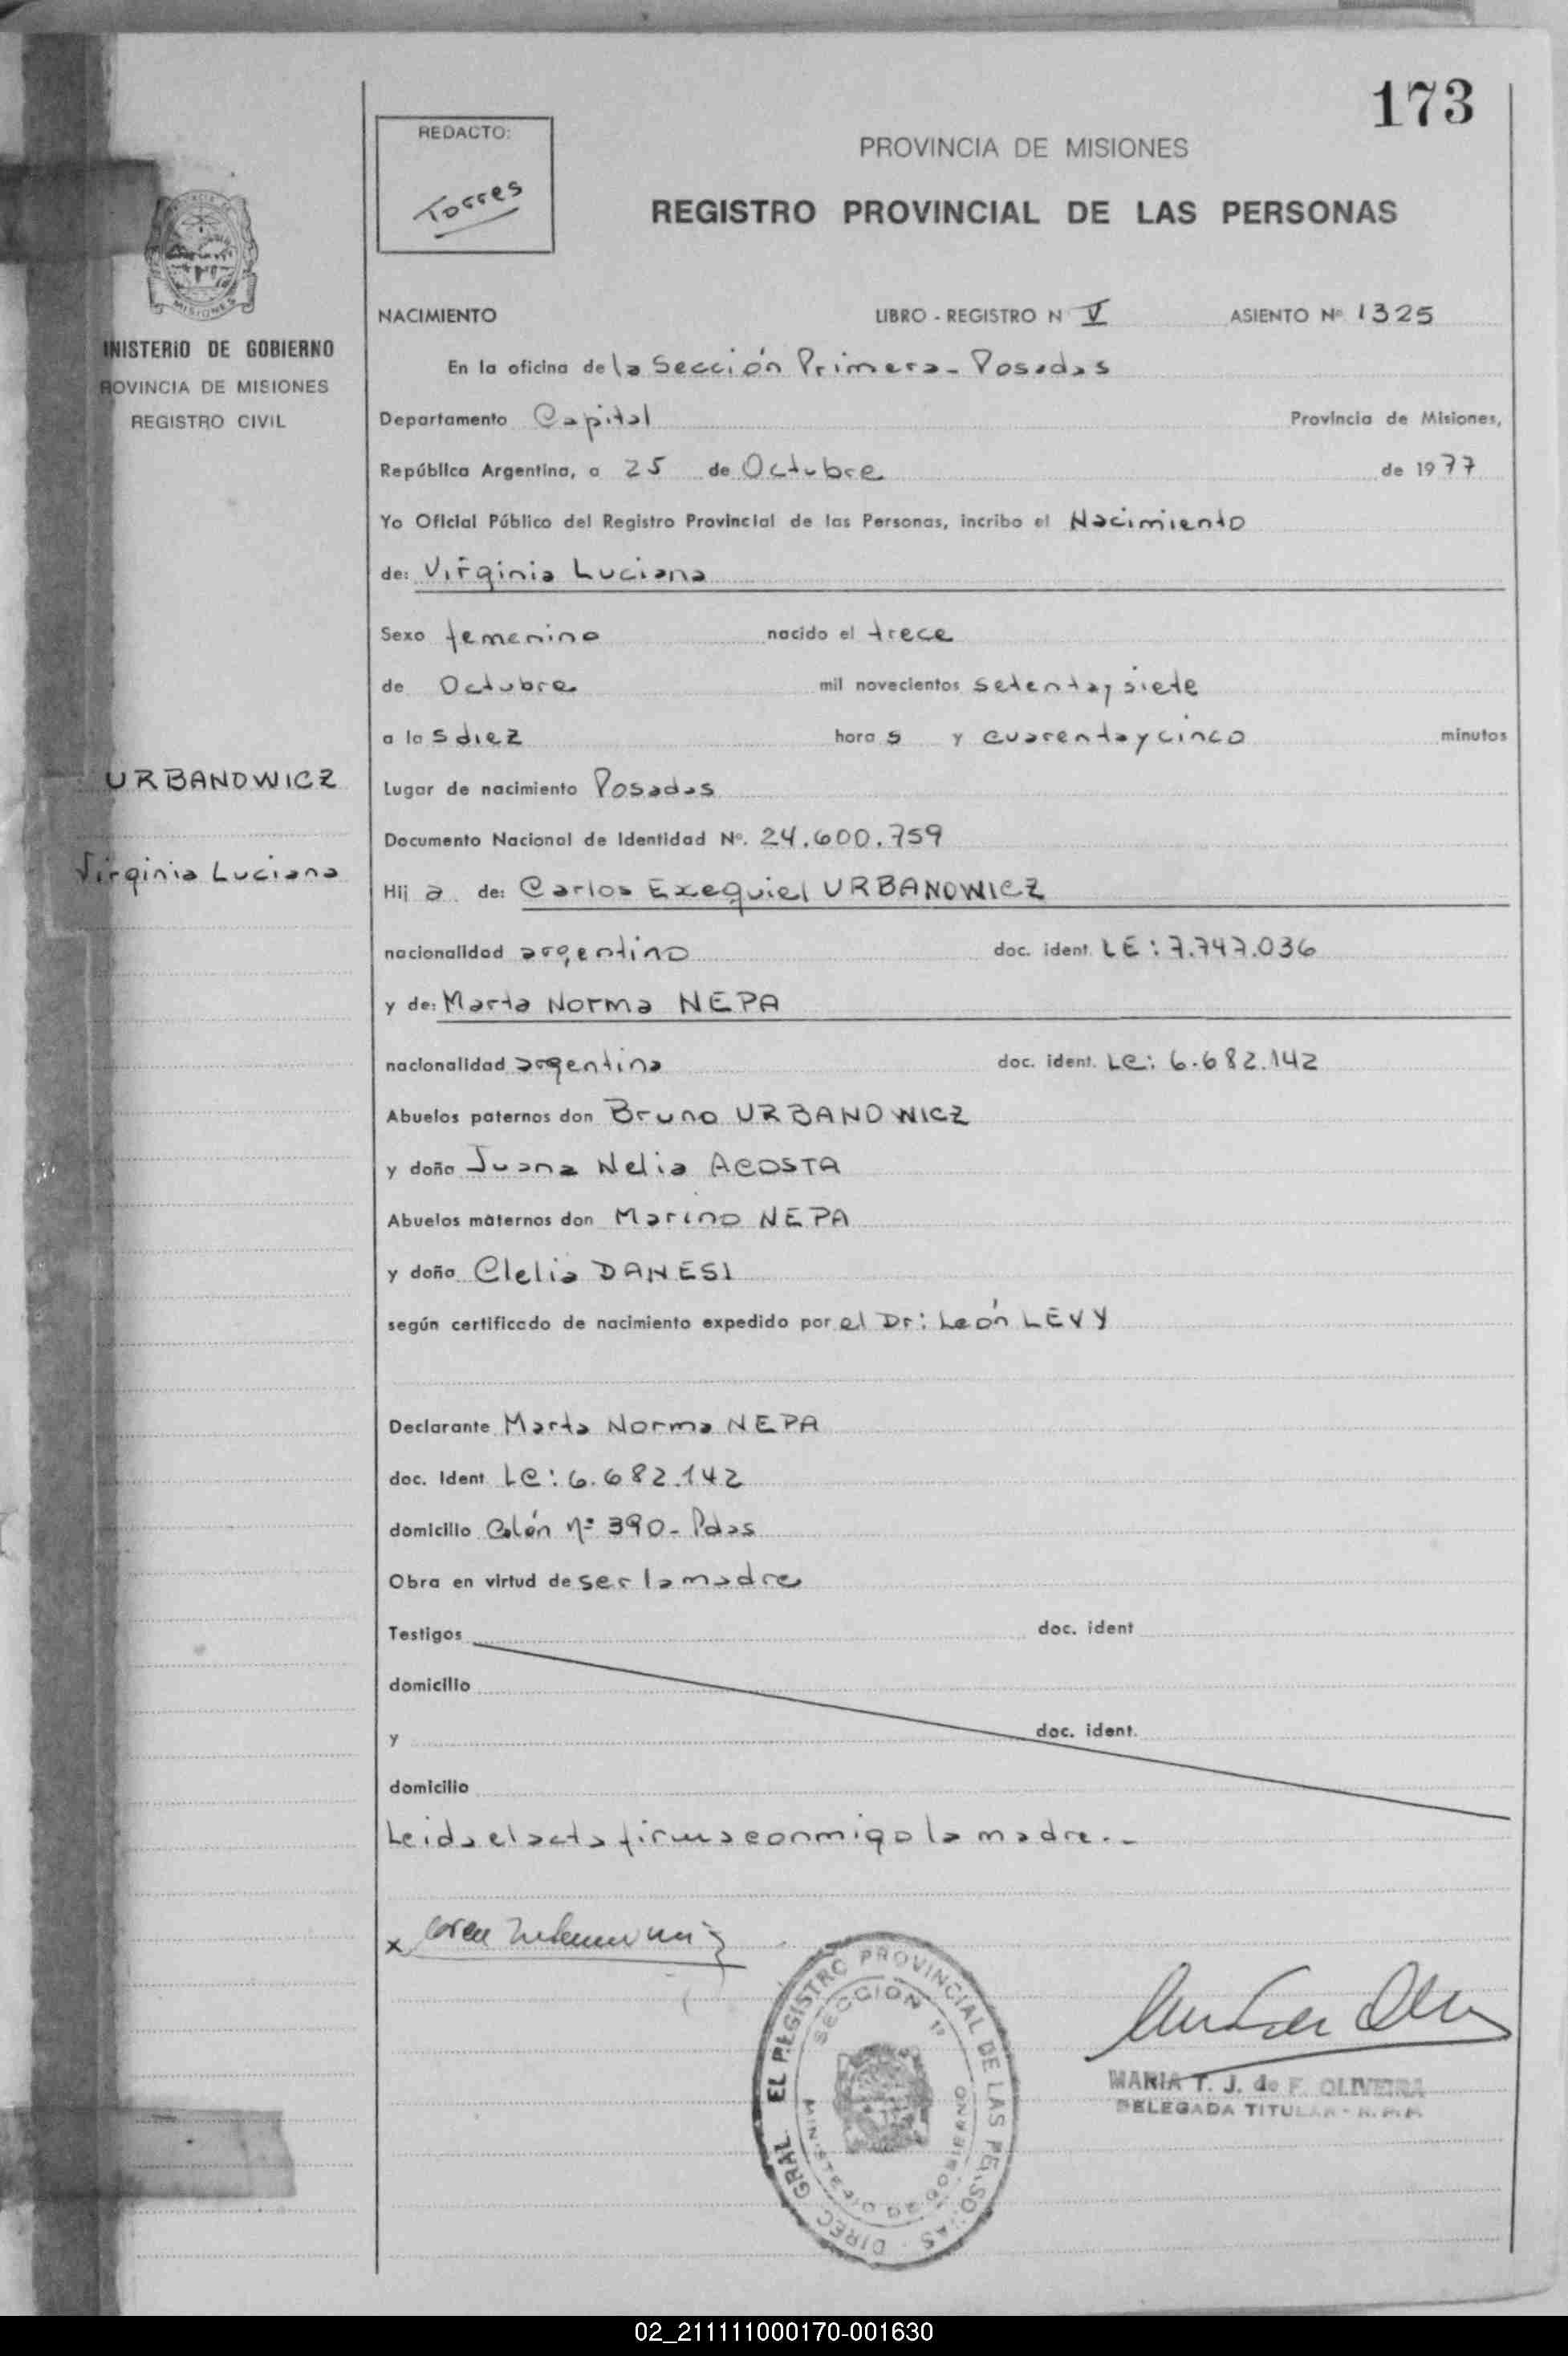 173
REDACTO:
Torres
PROVINCIA DE MISIONES
REGISTRO PROVINCIAL DE LAS PERSONAS
MISIONES
INISTERIO DE GOBIERNO
ROVINCIA DE MISIONES
REGISTRO CIVIL
NACIMIENTO LIBRO - REGISTRO N V ASIENTO Nº 1325
En la oficina de la Sección Primera - Posadas
Departamento Capital Provincia de Misiones,
República Argentina, a 25 de Octubre de 1977
Yo Oficial Público del Registro Provincial de las Personas, incribo el Nacimiento
de: Virginia Luciana
Sexo femenino nacido el trece
de Octubre mil novecientos setenta y siete
a las diez horas y cuarenta y cinco minutos
URBANOWICZ
Lugar de nacimiento Posadas
Documento Nacional de Identidad Nº. 24.600.759
Virginia Luciana
Hij a de: Carlos Exequiel URBANOWICZ
nacionalidad argentino doc. ident. LE: 7.747.036
y de: Marta Norma NEPA
nacionalidad argentina doc. ident. LC: 6.682.142
Abuelos paternos don Bruno URBANOWICZ
y doña Juana Nelia ACOSTA
Abuelos maternos don Marino NEPA
y doña Clelia DANESI
según certificado de nacimiento expedido por el Dr: León LEVY
Declarante Marta Norma NEPA
doc. Ident LC: 6.682.142
domicilio Colón Nº 390 - Pdas
Obra en virtud de ser la madre
Testigos doc. ident
domicilio
y doc. ident.
domicilio
Leida el acta firma conmigo la madre.-
x
DIREC. GRAL EL REGISTRO PROVINCIAL DE LAS PERSONAS
SECCION 1ª
MINISTERIO DE GOBIERNO
MARIA T. J. de F. OLIVEIRA
DELEGADA TITULAR - R.P.P.
02_211111000170-001630